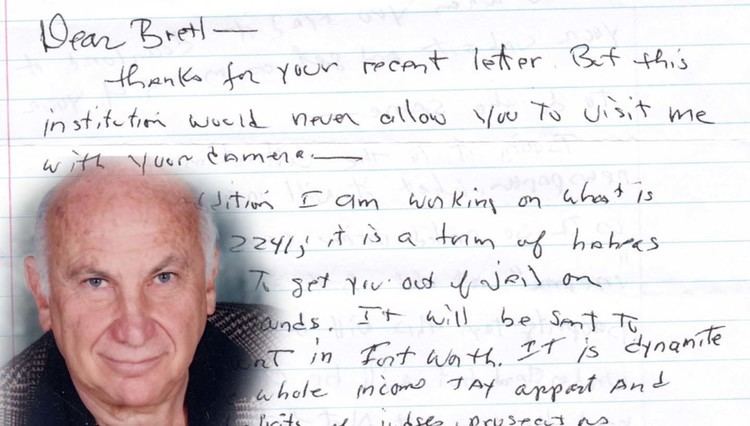 Dear Brett—
thanks for your recent letter. But this
institution would never allow you to visit me
with your camera.—
dition I am working on what is
2241; it is a form of habeas
To get you out of jail on
ands. It will be sent to
in Fort Worth. It is dynamite
whole income tax appart And
judges, prosecutors